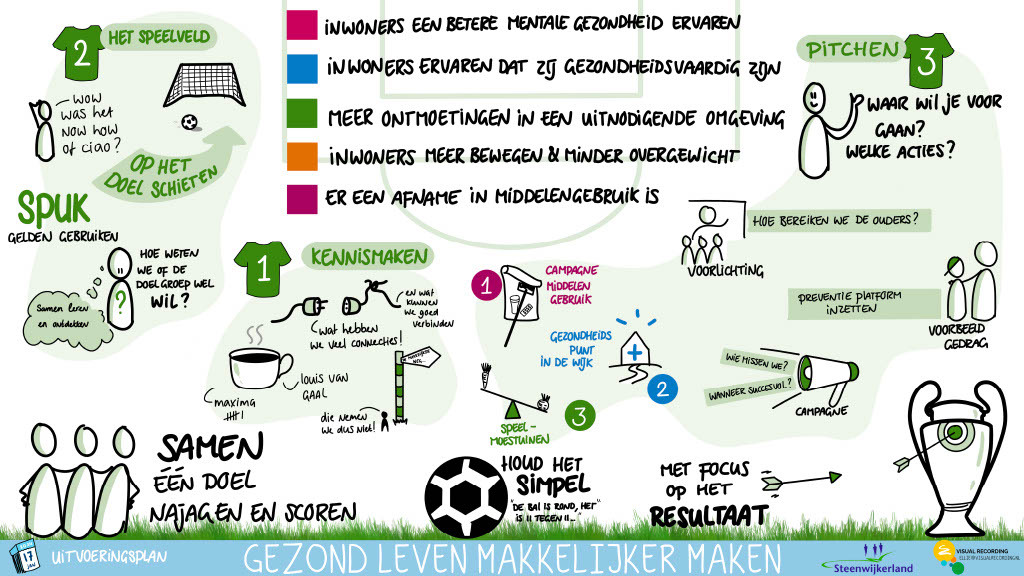 2
HET SPEELVELD
WOW
was het
now how
of ciao?
OP HET
DOEL SCHIETEN
SPUK
GELDEN GEBRUIKEN
HOE WETEN
WE OF DE
DOELGROEP WEL
WIL?
?
Samen leren
en ontdekken
INWONERS EEN BETERE MENTALE GEZONDHEID ERVAREN
INWONERS ERVAREN DAT ZIJ GEZONDHEIDSVAARDIG ZIJN
MEER ONTMOETINGEN IN EEN UITNODIGENDE OMGEVING
INWONERS MEER BEWEGEN & MINDER OVERGEWICHT
ER EEN AFNAME IN MIDDELENGEBRUIK IS
PITCHEN
3
WAAR WIL JE VOOR
GAAN?
WELKE ACTIES?
HOE BEREIKEN WE DE OUDERS?
VOORLICHTING
PREVENTIE PLATFORM
INZETTEN
VOORBEELD
GEDRAG
WIE MISSEN WE?
WANNEER SUCCESVOL?
CAMPAGNE
1
KENNISMAKEN
en wat
kunnen
we goed
verbinden
wat hebben
we veel connecties!
louis van
GAAL
maxima
die nemen
we dus niet!
1
CAMPAGNE
MIDDELEN
GEBRUIK
GEZONDHEIDS
PUNT
IN DE WIJK
2
3
SPEEL-
MOESTUINEN
SAMEN
ÉÉN DOEL
NAJAGEN EN SCOREN
HOUD HET
SIMPEL
"DE BAL IS ROND, HET
IS 11 TEGEN 11..."
MET FOCUS
OP HET
RESULTAAT
17
JAN
UITVOERINGSPLAN
GEZOND LEVEN MAKKELIJKER MAKEN
Steenwijkerland
VISUAL RECORDING